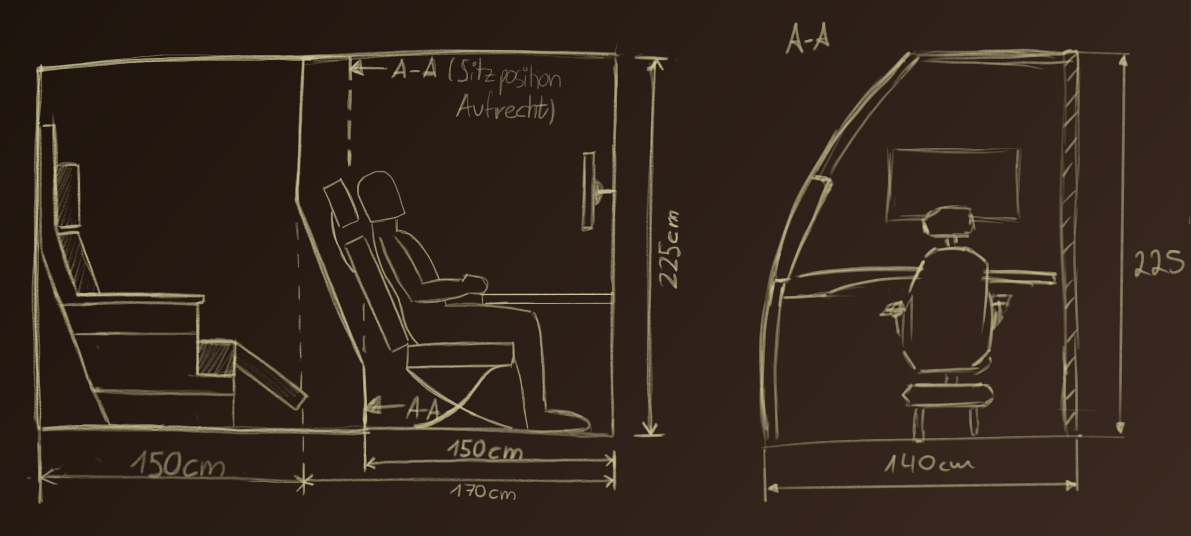 A-A (Sitzposition
Aufrecht)
225cm
A-A
150cm
150cm
170cm
A-A
225
140cm